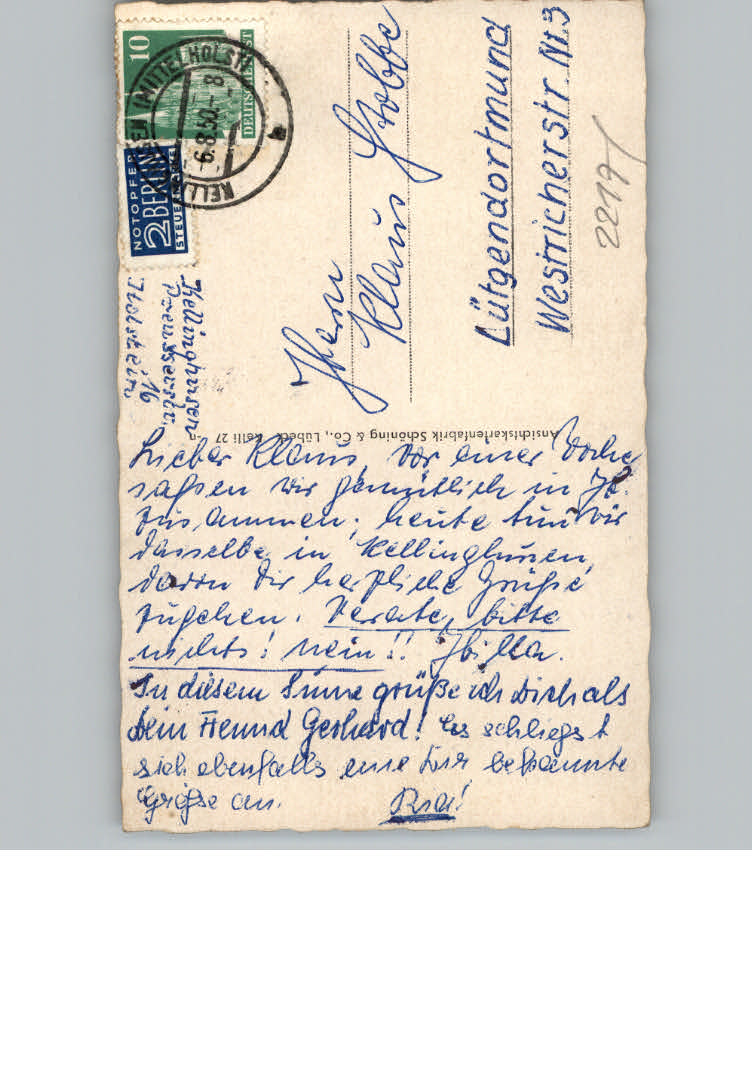 10
DEUTSCHE POST
KELLINGHUSEN (MITTELHOLST)
-6.8.50.-8
a
NOTOPFER
2 BERLIN
STEUERMARKE
Kellinghusen
16
Holstein
Herrn
Klaus Stobbe
Lütgendortmund
Westricherstr. Nr. 3
2219
Ansichtskartenfabrik Schöning & Co., Lübeck Kelli 27
Lieber Klaus, vor einer Woche
saßen wir gemütlich in
zusammen, heute tun wir
dasselbe in Kellinghusen,
davon Dir herzliche Grüße
zugehen. Verate, bitte
nichts! Nein!!
In diesem Sinne grüße ich dich als
dein Freund Gerhard! Es schliegst
sich ebenfalls eine Dir bekannte
Größe an.